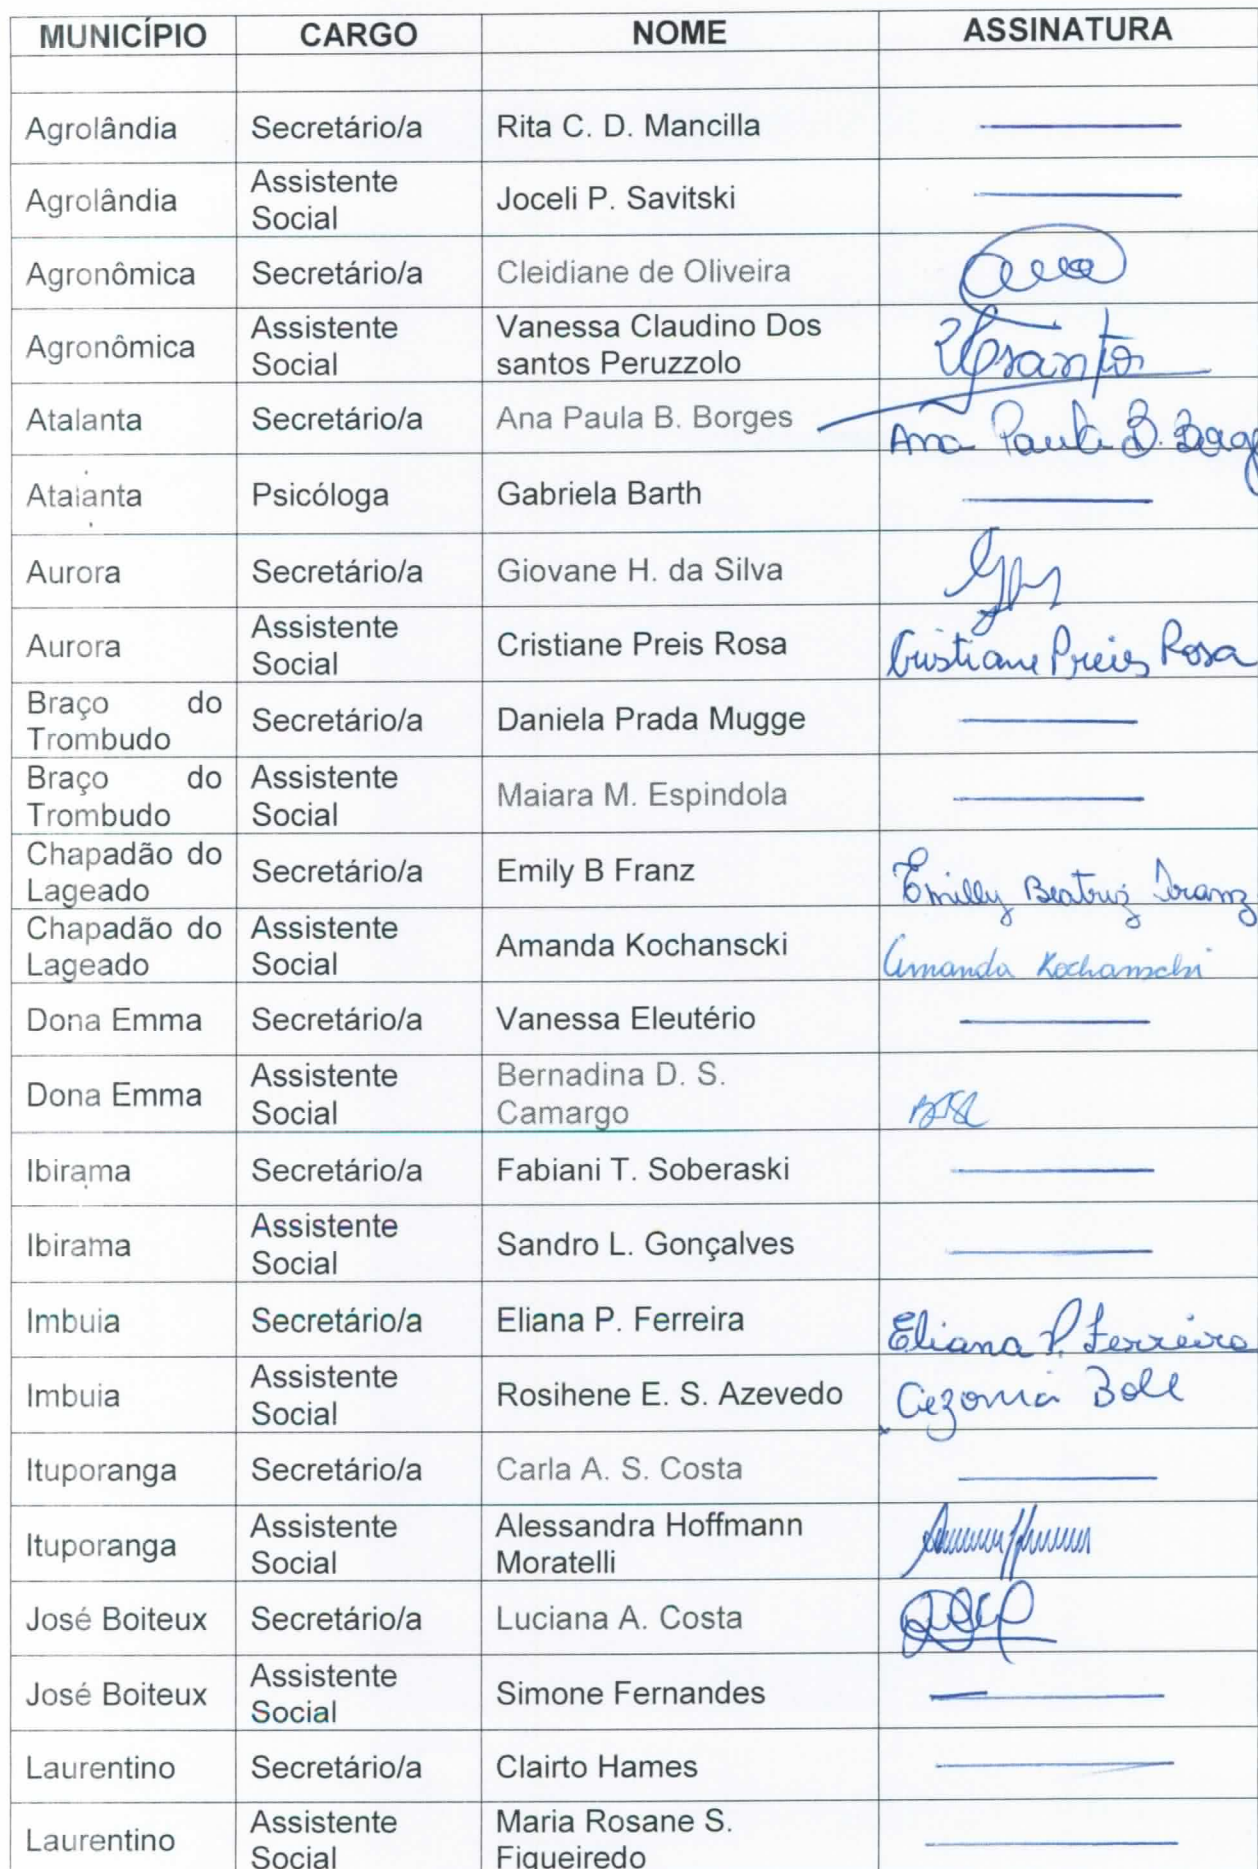 MUNICÍPIO CARGO NOME ASSINATURA
Agrolândia Secretário/a Rita C. D. Mancilla
Agrolândia Assistente Social Joceli P. Savitski
Agronômica Secretário/a Cleidiane de Oliveira
Agronômica Assistente Social Vanessa Claudino Dos santos Peruzzolo
Atalanta Secretário/a Ana Paula B. Borges Ana Paula B. Borg
Atalanta Psicóloga Gabriela Barth
Aurora Secretário/a Giovane H. da Silva
Aurora Assistente Social Cristiane Preis Rosa Cristiane Preis Rosa
Braço do Trombudo Secretário/a Daniela Prada Mugge
Braço do Trombudo Assistente Social Maiara M. Espindola
Chapadão do Lageado Secretário/a Emily B Franz Emilly Beatriz Franz
Chapadão do Lageado Assistente Social Amanda Kochanscki Amanda Kochanscki
Dona Emma Secretário/a Vanessa Eleutério
Dona Emma Assistente Social Bernadina D. S. Camargo
Ibirama Secretário/a Fabiani T. Soberaski
Ibirama Assistente Social Sandro L. Gonçalves
Imbuia Secretário/a Eliana P. Ferreira Eliana P. Ferreira
Imbuia Assistente Social Rosihene E. S. Azevedo
Ituporanga Secretário/a Carla A. S. Costa
Ituporanga Assistente Social Alessandra Hoffmann Moratelli
José Boiteux Secretário/a Luciana A. Costa
José Boiteux Assistente Social Simone Fernandes
Laurentino Secretário/a Clairto Hames
Laurentino Assistente Social Maria Rosane S. Figueiredo